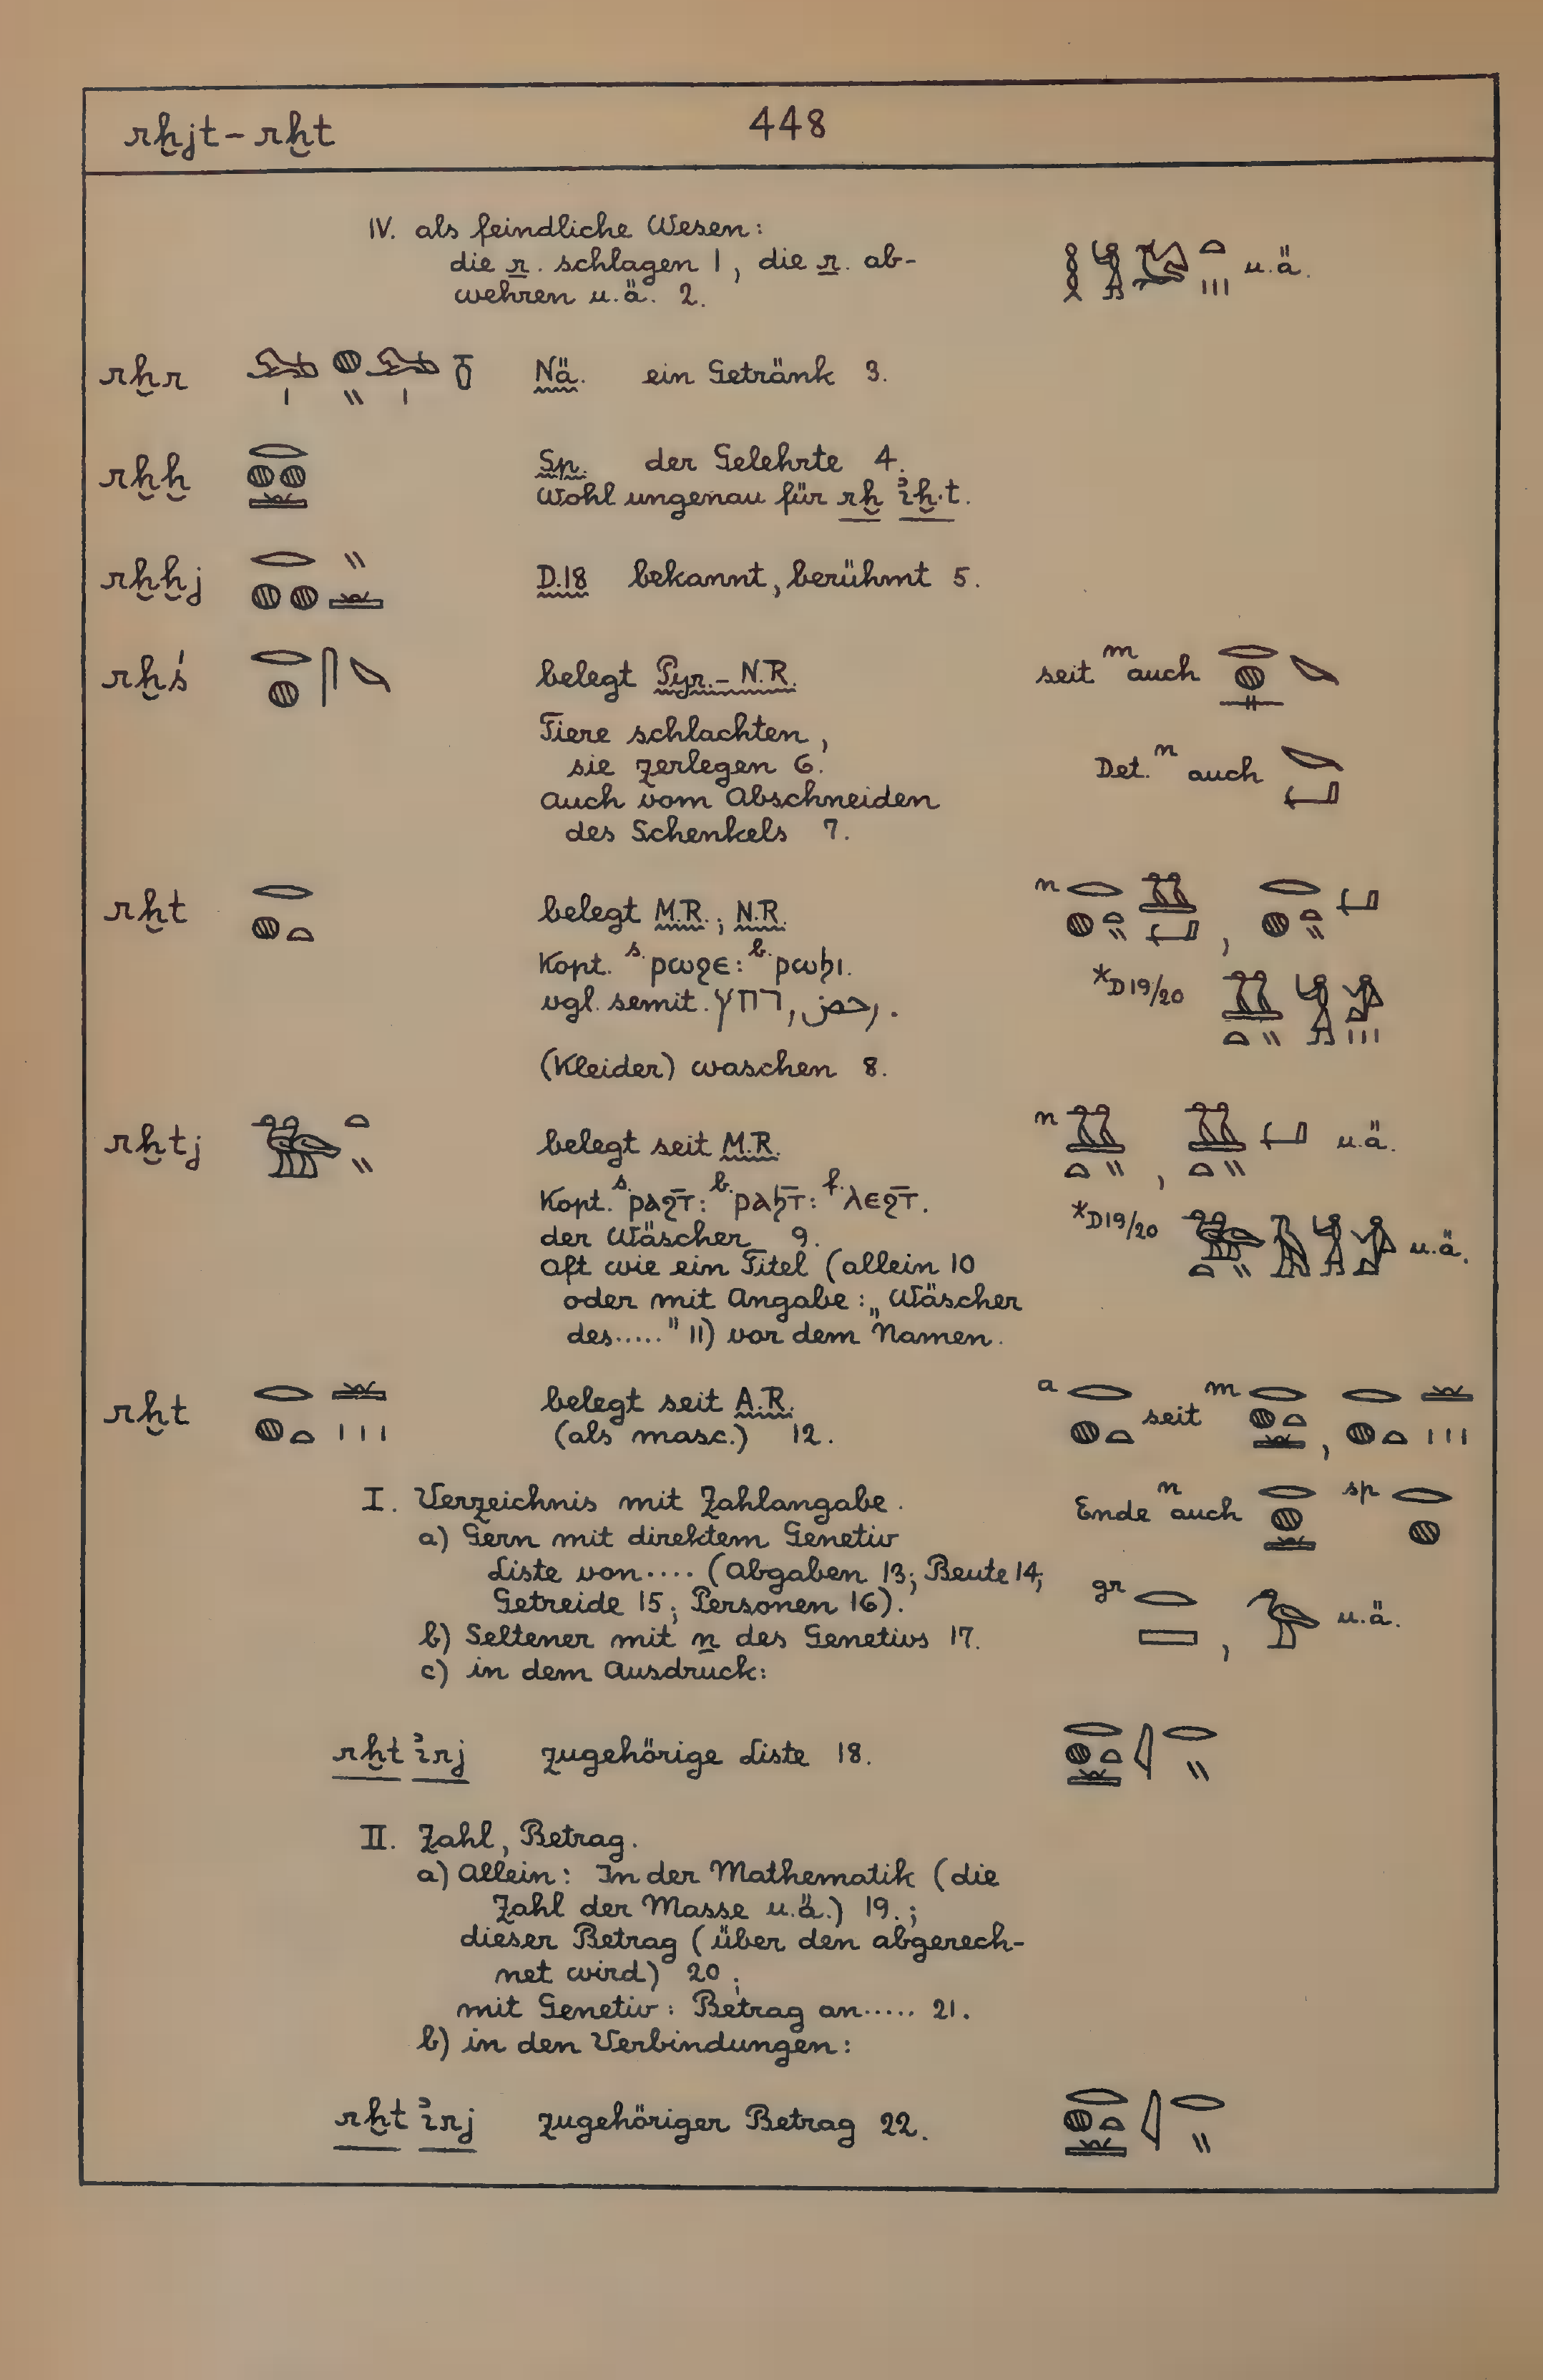 rḫjt – rḫt 448
IV. als feindliche Wesen:
die r. schlagen 1, die r. ab-
wehren u.ä. 2.
u.ä.
rḫr Nä. ein Getränk 3.
rḫḫ Sp. der Gelehrte 4.
Wohl ungenau für rḫ iḫ·t.
rḫḫj D.18 bekannt, berühmt 5.
rḫś belegt Pyr.– N.R. seit m auch
Tiere schlachten,
sie zerlegen 6. Det. n auch
auch vom Abschneiden
des Schenkels 7.
rḫt belegt M.R.; N.R. n ,
Kopt. s. ⲣⲱϩⲉ: b. ⲣⲱϧⲓ.
*D19/20
vgl. semit. רחץ, رحض.
(Kleider) waschen 8.
rḫtj belegt seit M.R. n , u.ä.
Kopt. s. ⲣⲁϩⲧ̄: b. ⲣⲁϧⲧ̄: f. ⲗⲉϩⲧ̄.
*D19/20 u.ä.
der Wäscher 9.
Oft wie ein Titel (allein 10
oder mit Angabe: „Wäscher
des....." 11) vor dem Namen.
rḫt belegt seit A.R. a seit m ,
(als masc.) 12.
I. Verzeichnis mit Zahlangabe. Ende n auch sp
a) Gern mit direktem Genetiv
Liste von.... (Abgaben 13; Beute 14;
Getreide 15; Personen 16). gr , u.ä.
b) Seltener mit n des Genetivs 17.
c) in dem Ausdruck:
rḫt irj zugehörige Liste 18.
II. Zahl, Betrag.
a) Allein: In der Mathematik (die
Zahl der Masse u.ä.) 19.;
dieser Betrag (über den abgerech-
net wird) 20;
mit Genetiv: Betrag an..... 21.
b) in den Verbindungen:
rḫt irj zugehöriger Betrag 22.